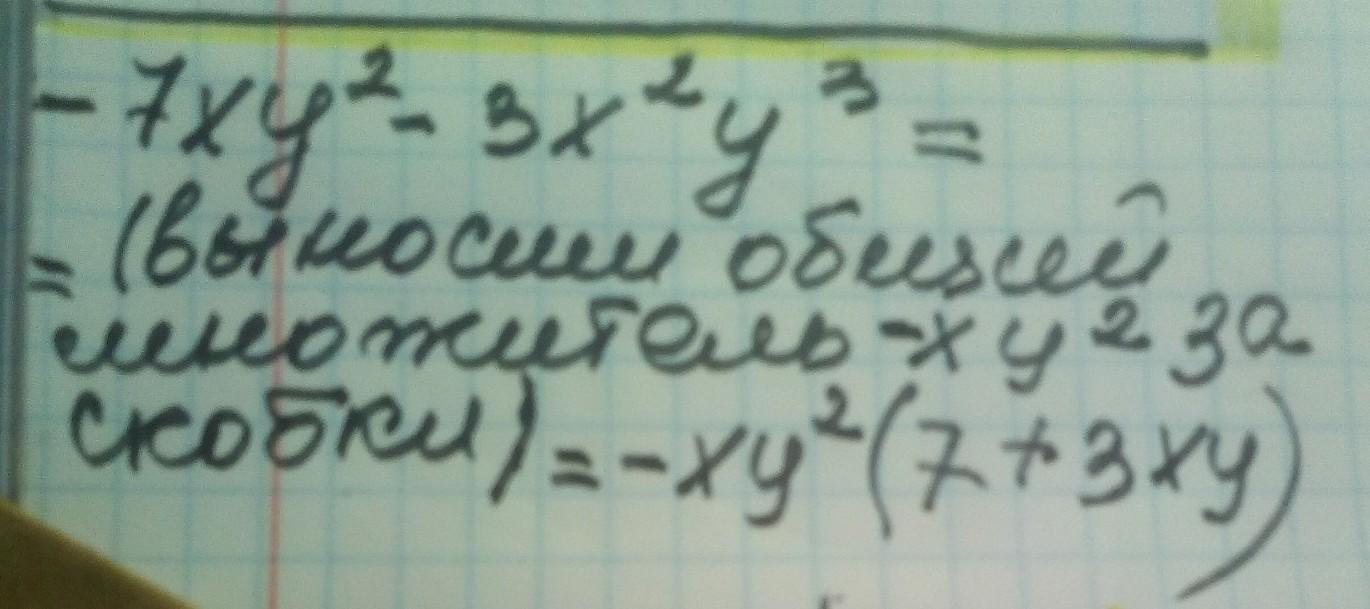 - 7xy² - 3x²y³ =
= (выносим общий
множитель -xy² за
скобки) = -xy² (7 + 3xy)